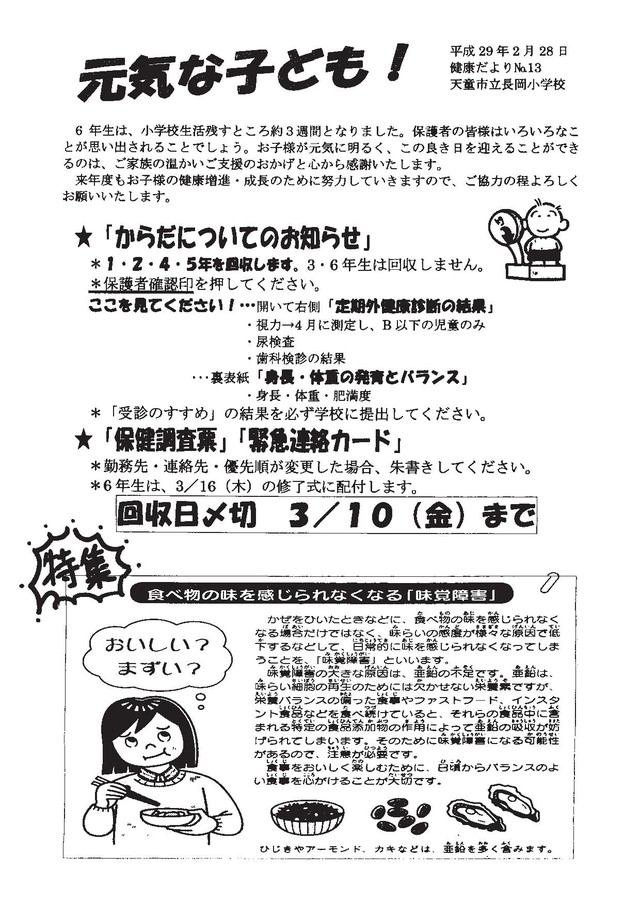 元気な子ども！
平成29年2月28日
健康だより№13
天童市立長岡小学校
6年生は、小学校生活残すところ約3週間となりました。保護者の皆様はいろいろなこ
とが思い出されることでしょう。お子様が元気に明るく、この良き日を迎えることができ
るのは、ご家族の温かいご支援のおかげと心から感謝いたします。
来年度もお子様の健康増進・成長のために努力していきますので、ご協力の程よろしく
お願いいたします。
★「からだについてのお知らせ」
＊1・2・4・5年を回収します。3・6年生は回収しません。
＊保護者確認印を押してください。
ここを見てください！…開いて右側「定期外健康診断の結果」
・視力→4月に測定し、B以下の児童のみ
・尿検査
・歯科検診の結果
…裏表紙「身長・体重の発育とバランス」
・身長・体重・肥満度
＊「受診のすすめ」の結果を必ず学校に提出してください。
★「保健調査票」「緊急連絡カード」
＊勤務先・連絡先・優先順が変更した場合、朱書きしてください。
＊6年生は、3／16（木）の修了式に配付します。
回収日〆切　3／10（金）まで
特集
食べ物の味を感じられなくなる「味覚障害」
おいしい？
まずい？
かぜをひいたときなどに、食べ物の味を感じられなく
なる場合だけではなく、味らいの感度が様々な原因で低
下するなどして、日常的に味を感じられなくなってしま
うことを、「味覚障害」といいます。
味覚障害の大きな原因は、亜鉛の不足です。亜鉛は、
味らい細胞の再生のためには欠かせない栄養素ですが、
栄養バランスの偏った食事やファストフード、インスタ
ント食品などを食べ続けていると、それらの食品中に含
まれる特定の食品添加物の作用によって亜鉛の吸収が妨
げられてしまいます。そのために味覚障害になる可能性
があるので、注意が必要です。
食事をおいしく楽しむために、日頃からバランスのよ
い食事を心がけることが大切です。
ひじきやアーモンド、カキなどは、亜鉛を多く含みます。